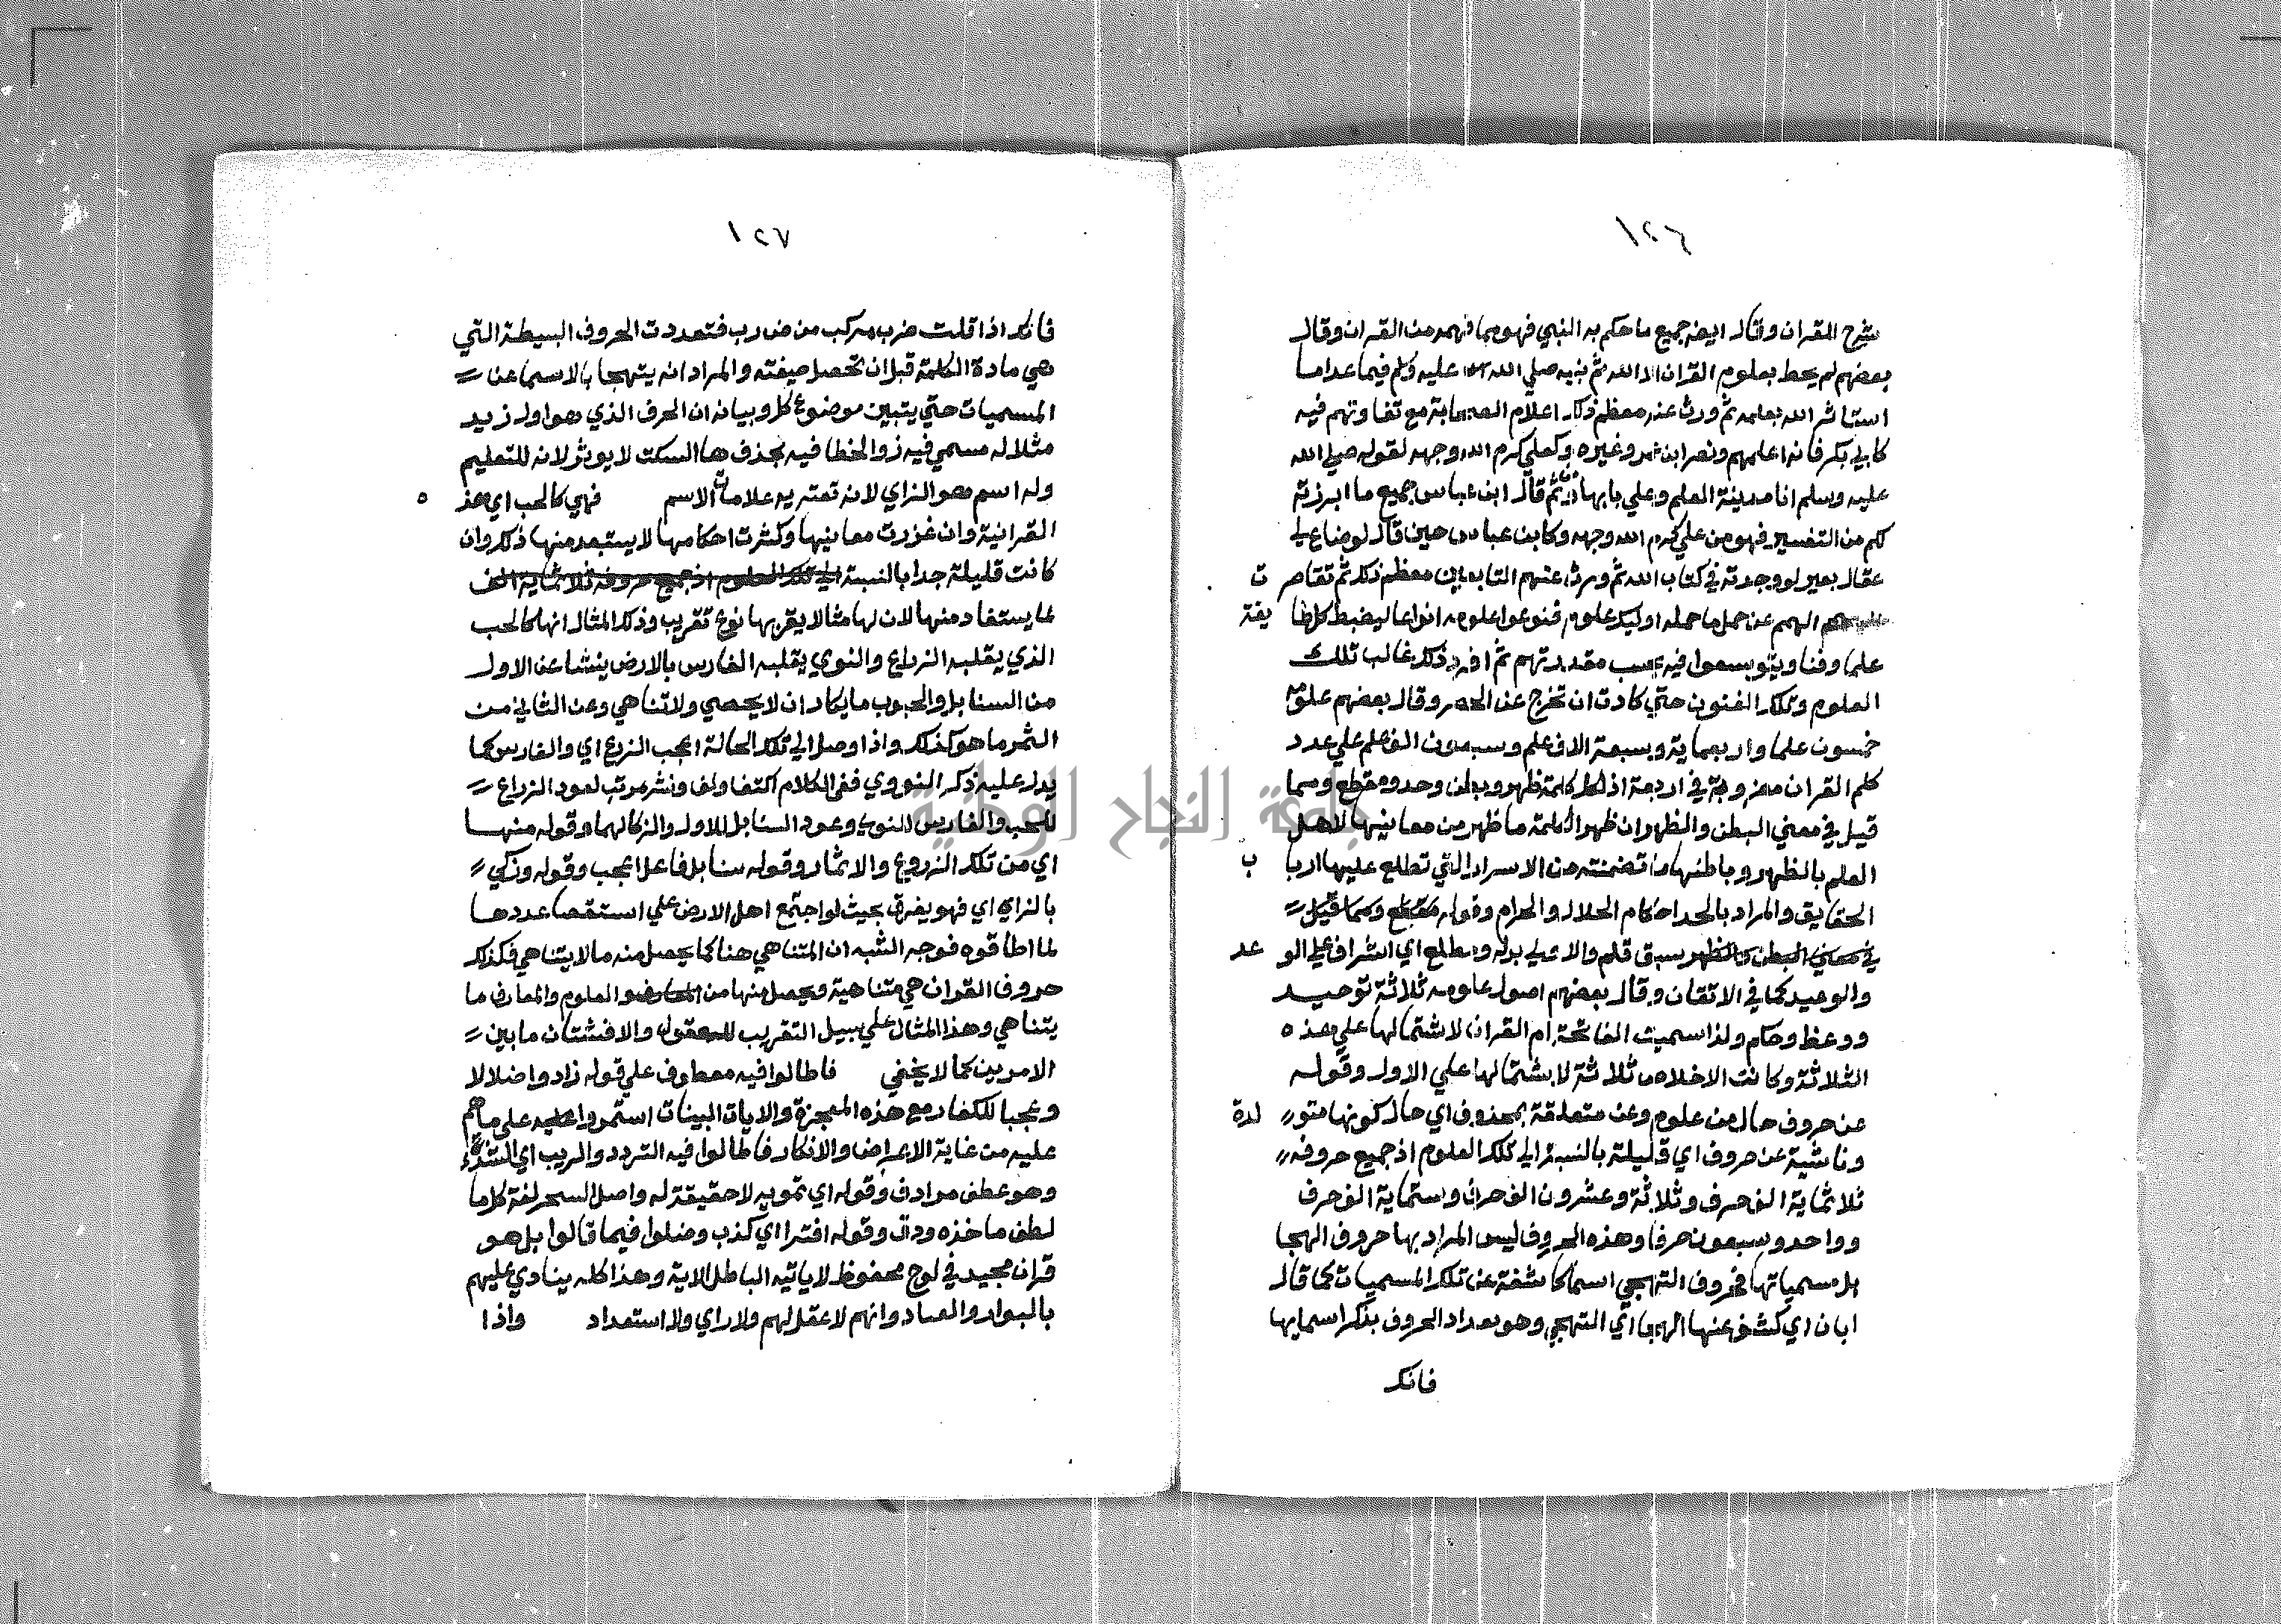 ١٢٦
شرح القران وقال ايضا جميع ما حكم به النبي فهو مما فهمه من القران وقال
بعضهم لم يحط بعلوم القران الا الله ثم نبيه صلي الله عليه وسلم فيما عدا ما
استاثر الله بعلمه ثم ورث عنه معظم ذلك اعلام الصحابة مع تفاوتهم فيه
كابي بكر فانه اعلمهم ونص ابن عمر وغيره وكعلي كرم الله وجهه لقوله صلي الله
عليه وسلم انا مدينة العلم وعلي بابها ومن ثم قال ابن عباس جميع ما ابرزته
لكم من التفسير فهو من علي كرم الله وجهه وكابن عباس حين قال لو ضاع لي
عقال بعير لوجدته في كتاب الله ثم ورث عنهم التابعين معظم ذلك ثم تقاصرت
الهمم عن حمل ما حمله اوليك علوم فنوعوا علومه انواعا ليضبط كل طايفة
علما وفنا ويتوسعوا فيه بحسب مقدرتهم ثم افرد ذلك غالب تلك
العلوم وتلك الفنون حتي كادت ان تخرج عن الحصر وقال بعضهم علومه
خمسون علما واربعماية وسبعة الاف علم وسبعون الف علم علي عدد
كلم القران مضروبة في اربعة اذ لكل كلمة ظهر وبطن وحد ومقطع ومما
قيل في معني البطن والظهر ان ظهر الكلمة ما ظهر من معانيها لاهل
العلم بالظهر وباطنها ما تضمنته من الاسرار التي تطلع عليها ارباب
الحقايق والمراد بالحد احكام الحلال والحرام وقوله مقطع ومما قيل
في معني البطن والظهر سبق قلم والاولي بدله ومطلع اي اشراف علي الوعد
والوعيد كما في الاتقان وقال بعضهم اصول علومه ثلاثة توحيد
ووعظ وحكم ولذا سميت الفاتحة ام القران لاشتمالها علي هذه
الثلاثة وكانت الاخلاص ثلاثة لاشتمالها علي الاول وقوله
عن حروف حال من علوم وعن متعلقة بمحذوف اي حال كونها متولدة
وناشية عن حروف اي قليلة بالنسبة الي تلك العلوم اذ جميع حروفه
ثلاثماية الف حرف وثلاثة وعشرون الف حرف وستماية الف حرف
وواحد وسبعون حرفا وهذه الحروف ليس المراد بها حروف الهجا
بل مسمياتها فحروف التهجي اسما كاشفة عن تلك المسميات كما قال
ابان اي كشف عنها الهجا اي التهجي وهو تعداد الحروف بذكر اسمايها
فانك
١٢٧
فانك اذا قلت ضرب مركب من ض ر ب فتعددت الحروف البسيطة التي
هي مادة الكلمة قبل ان تحصل صيغته والمراد انه يتهجا بالاسما عن
المسميات حتي يتبين موضوع كل وبيانه ان الحرف الذي هو اول زيد
مثلا له مسمي فيه ز والخطا فيه بحذف ها السكت لا يوثر لانه للتعليم
وله اسم وهو الزاي لانه تعتريه علامات الاسم فهي كالحب اي هذه
القرانية وان غزرت معانيها وكثرت احكامها لا يستبعد منها ذلك وان
كانت قليلة جدا بالنسبة الي تلك العلوم اذ جميع حروفه ثلاثماية الف
لما يستفاد منها لان لها مثالا يقربها نوع تقريب وذلك المثال انها كالحب
الذي يقلبه الزراع والنوي يقلبه الغارس بالارض ينشا عن الاول
من السنابل والحبوب ما يكاد ان لا يحصي ولا تناهي وعن الثاني من
الثمر ما هو كذلك واذا وصل الي تلك الحالة اعجب الزرع اي والغارس كما
يدل عليه ذكر النووي ففي الكلام اكتفا ولف ونشر مرتب لعود الزراع
للحب والغارس للنوي وعود السنابل للاول والزكا لهما وقوله منها
اي من تلك الزروع والاثمار وقوله سنابل فاعل اعجب وقوله وزكي
بالزاي اي فهو يفرق بحيث لو اجتمع اهل الارض علي استقصا عددها
لما اطاقوه فوجه الشبه ان المتناهي هنا كما يحصل منه ما لا يتناهي فكذلك
حروف القران هي متناهية ويحصل منها من العلوم والمعارف ما
يتناهي وهذا المثال علي سبيل التقريب للعقول والافشتان ما بين
الامرين كما لا يخفي فاطالوا فيه معطوف علي قوله زادوا ضلالا
وعجبا للكفار مع هذه المعجزة والايات البينات استمروا علي ما هم
عليه من غاية الاعراض والانكار فاطالوا فيه التردد والريب اي الشك
وهو عطف مرادف وقوله اي تمويه لا حقيقة له واصل السحر لغة كل ما
لطف ماخذه ودق وقوله افترا اي كذب وضلوا فيما قالوا بل هو
قران مجيد في لوح محفوظ لا ياتيه الباطل الاية وهذا كله ينادي عليهم
بالبوار والعناد وانهم لا عقل لهم ولا راي ولا استعداد واذا
جامعة النجاح الوطنية